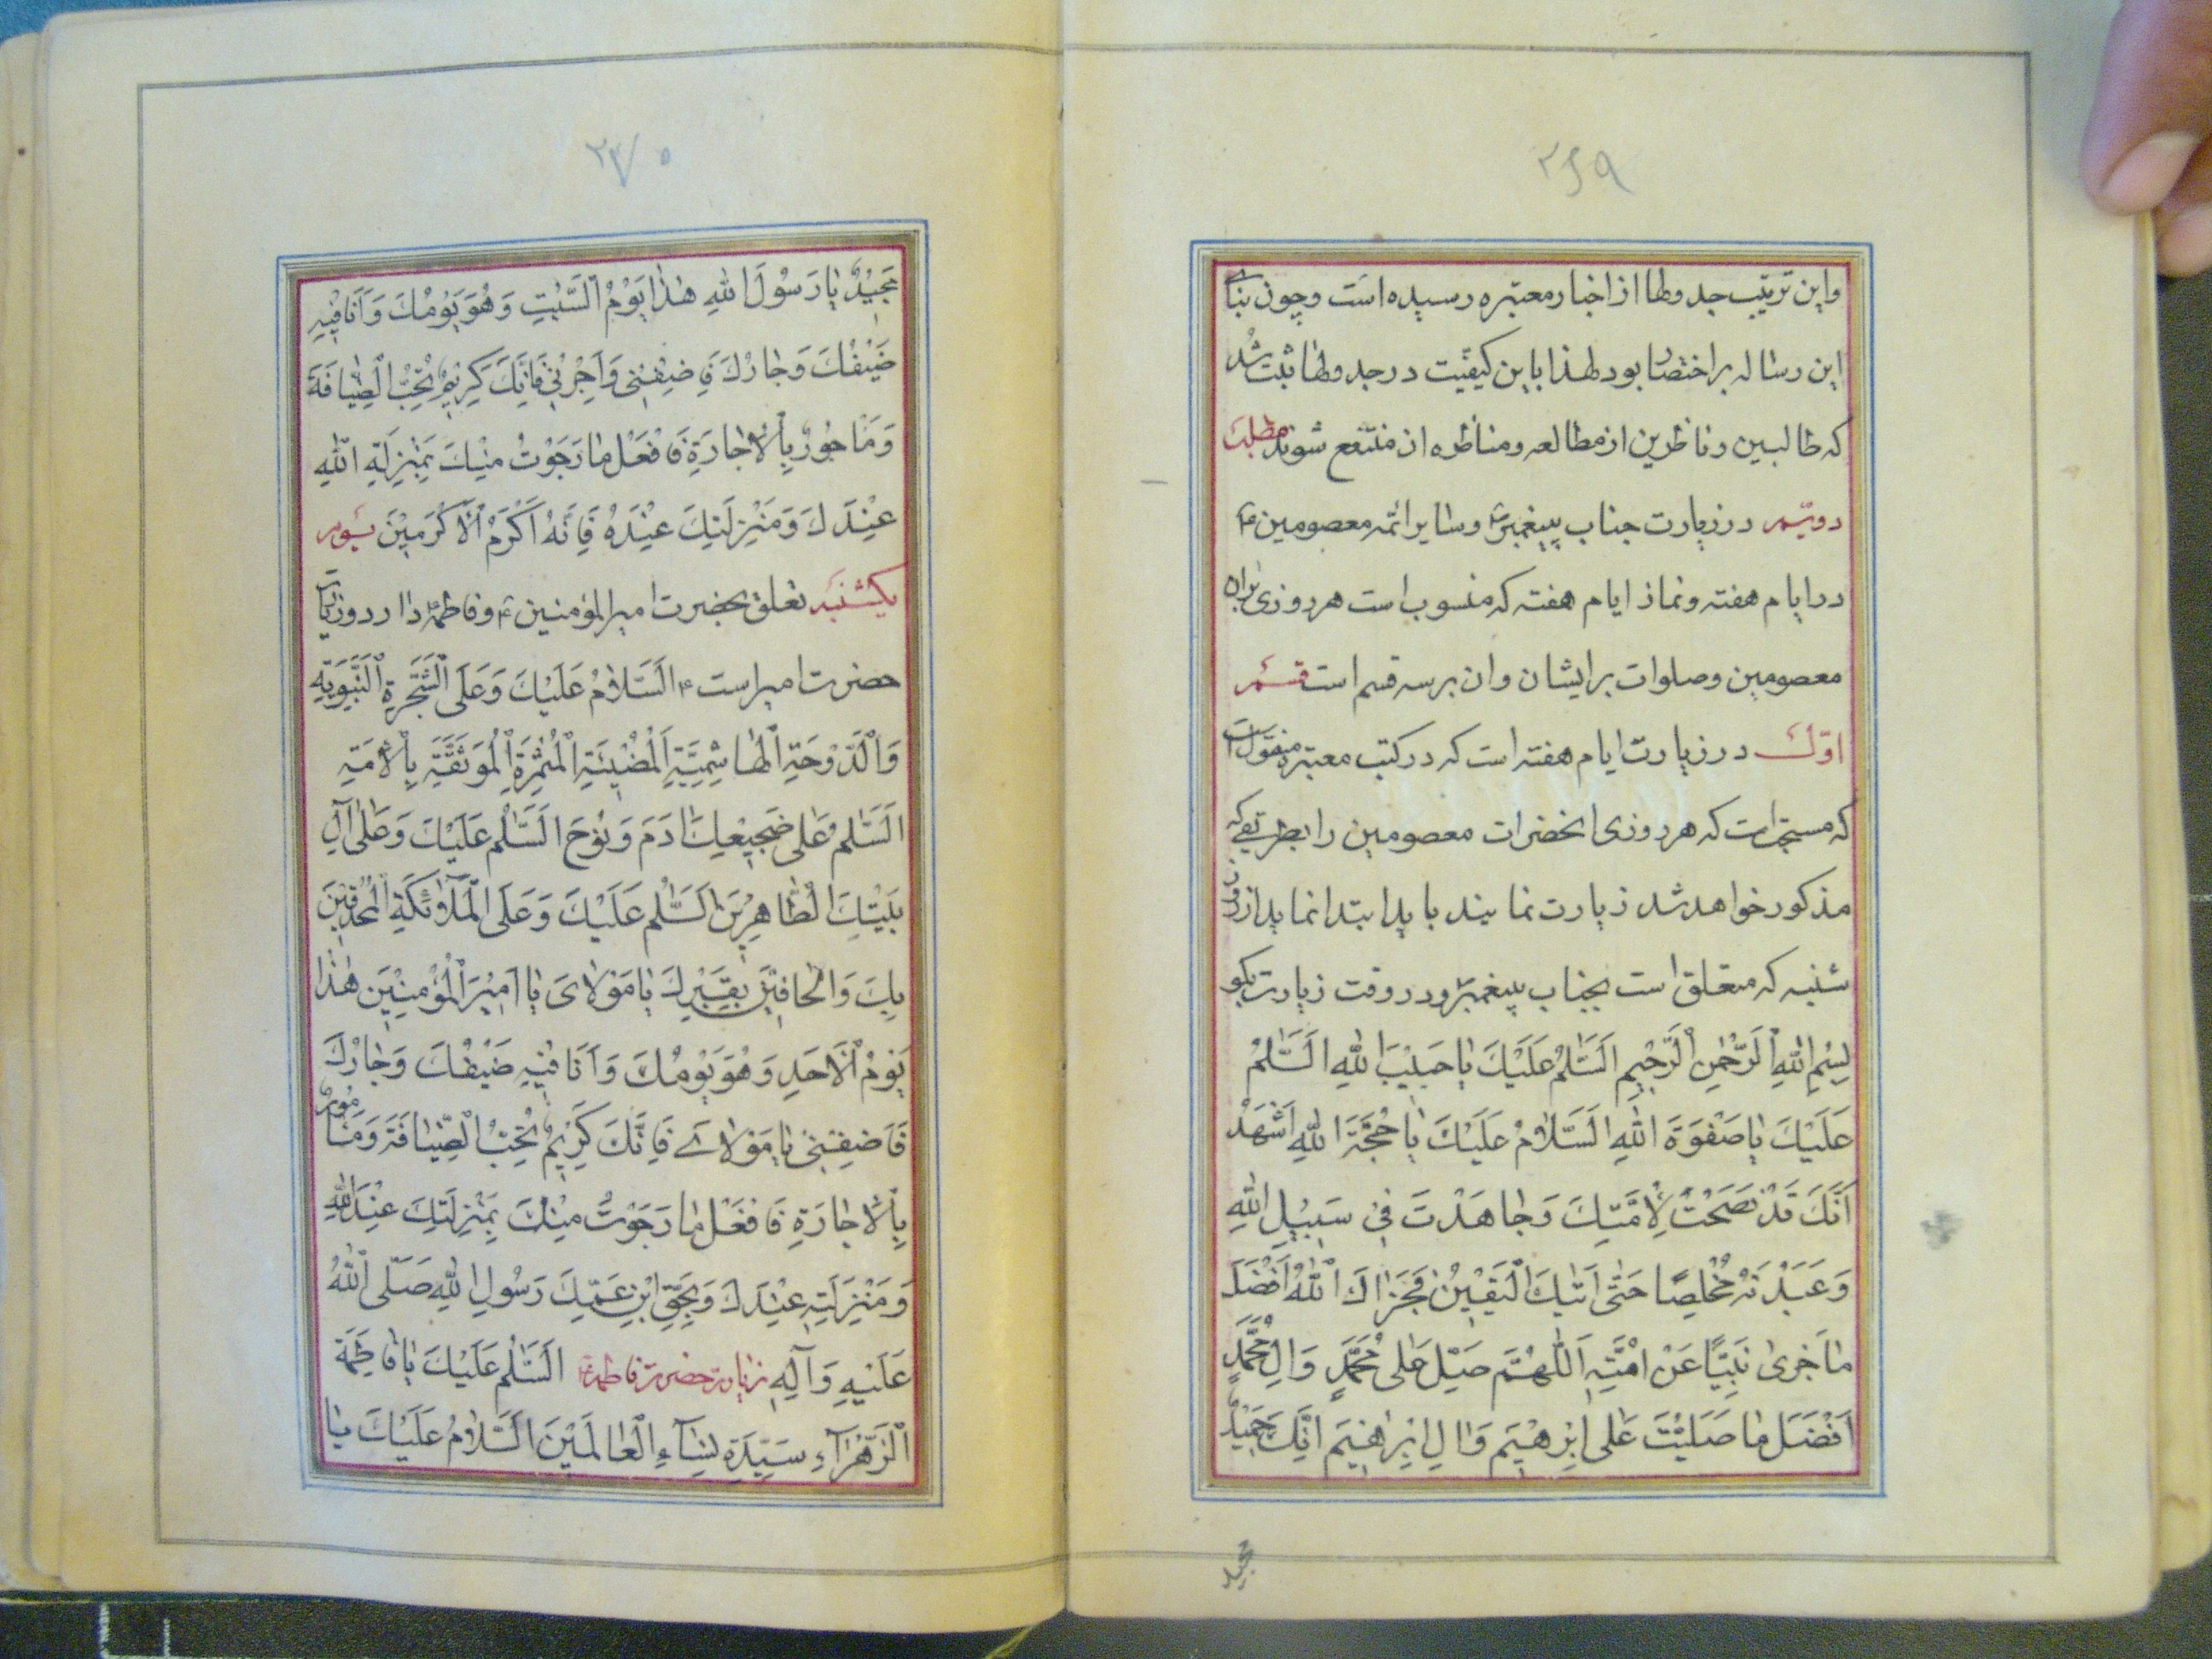 ۲۶۹
واین ترتیب جدولها از اخبار معتبره رسیده است وچون بنای
این رساله بر اختصار بود لهذا باین کیفیّت در جدولها ثبت شد
که طالبین وناظرین از مطالعه ومناظره ان منتفع شوند مطلب
دویّم در زیارت جناب پیغمبر ص وسایر ائمه معصومین ع
در ایام هفته ونماز ایام هفته که منسوب است هر روزی براه
معصومین وصلوات بر ایشان وان بر سه قسم است قسم
اوّل در زیارت ایام هفته است که در کتب معتبره منقول است
که مستحب است که هر روزی انحضرات معصومین را بطریقی که
مذکور خواهد شد زیارت نمایند باید ابتدا نماید از روز
شنبه که متعلق است بجناب پیغمبر ص ودر وقت زیارت بگو
بِسْمِ اللّٰهِ الرَّحْمٰنِ الرَّحِيْمِ اَلسَّلٰمُ عَلَيْكَ يٰا حَبِيْبَ اللّٰهِ اَلسَّلٰمُ
عَلَيْكَ يٰا صَفْوَةَ اللّٰهِ اَلسَّلٰامُ عَلَيْكَ يٰا حُجَّةَ اللّٰهِ اَشْهَدُ
اَنَّكَ قَدْ نَصَحْتَ لِاُمَّتِكَ وَجٰاهَدْتَ فِي سَبِيْلِ اللّٰهِ
وَعَبَدْتَهُ مُخْلِصًا حَتّٰى اَتٰيكَ الْيَقِيْنُ فَجَزٰاكَ اللّٰهُ اَفْضَلَ
مٰا جَزىٰ نَبِيًّا عَنْ اُمَّتِهِ اَللّٰهُمَّ صَلِّ عَلٰى مُحَمَّدٍ وَاٰلِ مُحَمَّدٍ
اَفْضَلَ مٰا صَلَيْتَ عَلٰى اِبْرٰهِيْمَ وَاٰلِ اِبْرٰاهِيْمَ اِنَّكَ حَمِيْدٌ
مجید
۲۷۰
مَجِيْدٌ يٰا رَسُوْلَ اللّٰهِ هٰذٰا يَوْمُ السَّبْتِ وَهُوَ يَوْمُكَ وَاَنَا فِيْهِ
ضَيْفُكَ وَجٰارُكَ فَاَضِفْنِي وَاَجِرْنِي فَاِنَّكَ كَرِيْمٌ تُحِبُّ الضِّيٰافَةَ
وَمَأْمُوْرٌ بِالْاِجٰارَةِ فَافْعَلْ مٰا رَجَوْتُ مِنْكَ بِمَنْزِلَةِ اللّٰهِ
عِنْدَكَ وَمَنْزِلَتِكَ عِنْدَهُ فَاِنَّهُ اَكْرَمُ الْاَكْرَمِيْنَ یوم
یکشنبه تعلق بحضرت امیرالمؤمنین ع وفاطمه ع دارد وزیارت
حضرت امیر است ع اَلسَّلٰامُ عَلَيْكَ وَعَلَى الشَّجَرَةِ النَّبَوِيَّةِ
وَالدَّوْحَةِ الْهٰاشِمِيَّةِ الْمُضِيْئَةِ الْمُثْمِرَةِ الْمُوَنِقَةِ بِالْاِمٰامَةِ
اَلسَّلٰمُ عَلٰى ضَجِيْعِكَ اٰدَمَ وَنُوْحَ اَلسَّلٰمُ عَلَيْكَ وَعَلٰى اٰلِ
بَيْتِكَ الطّٰاهِرِيْنَ اَلسَّلٰمُ عَلَيْكَ وَعَلَى الْمَلٰائِكَةِ الْمُحْدِقِيْنَ
بِكَ وَالْحٰافِيْنَ بِقَبْرِكَ يٰا مَوْلٰاىَ يٰا اَمِيْرَ الْمُؤْمِنِيْنَ هٰذٰا
يَوْمُ الْاَحَدِ وَهُوَ يَوْمُكَ وَاَنَا فِيْهِ ضَيْفُكَ وَجٰارُكَ
فَاَضِفْنِي يٰا مَوْلٰاىَ فَاِنَّكَ كَرِيْمٌ تُحِبُّ الضِّيٰافَةَ وَمَأْمُوْرٌ
بِالْاِجٰارَةِ فَافْعَلْ مٰا رَجَوْتُ مِنْكَ بِمَنْزِلَتِكَ عِنْدَ اللّٰهِ
وَمَنْزِلَتِهِ عِنْدَكَ وَبِحَقِّ ابْنِ عَمِّكَ رَسُوْلِ اللّٰهِ صَلَّى اللّٰهُ
عَلَيْهِ وَآلِهِ زیارت حضرت فاطمه ع اَلسَّلٰمُ عَلَيْكَ يٰا فٰاطِمَةَ
الزَّهْرٰآءِ سَيِّدَةِ نِسٰآءِ الْعٰالَمِيْنَ اَلسَّلٰامُ عَلَيْكَ يٰا